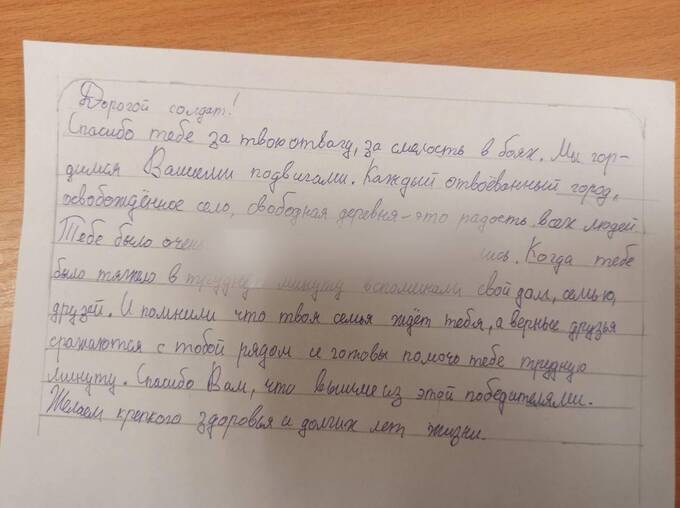 Дорогой солдат!
Спасибо тебе за твою отвагу, за смелость в боях. Мы гор-
димся Вашими подвигами. Каждый отвоёванный город,
освобождённое село, свободная деревня - это радость всех людей
Тебе было очень. Когда тебе
было тяжело в трудную минуту вспоминали свой дом, семью,
друзей. И помнили что твоя семья ждёт тебя, а верные друзья
сражаются с тобой рядом и готовы помочь тебе трудную
минуту. Спасибо Вам, что вышли из этой победителями.
Желаем крепкого здоровья и долгих лет жизни.